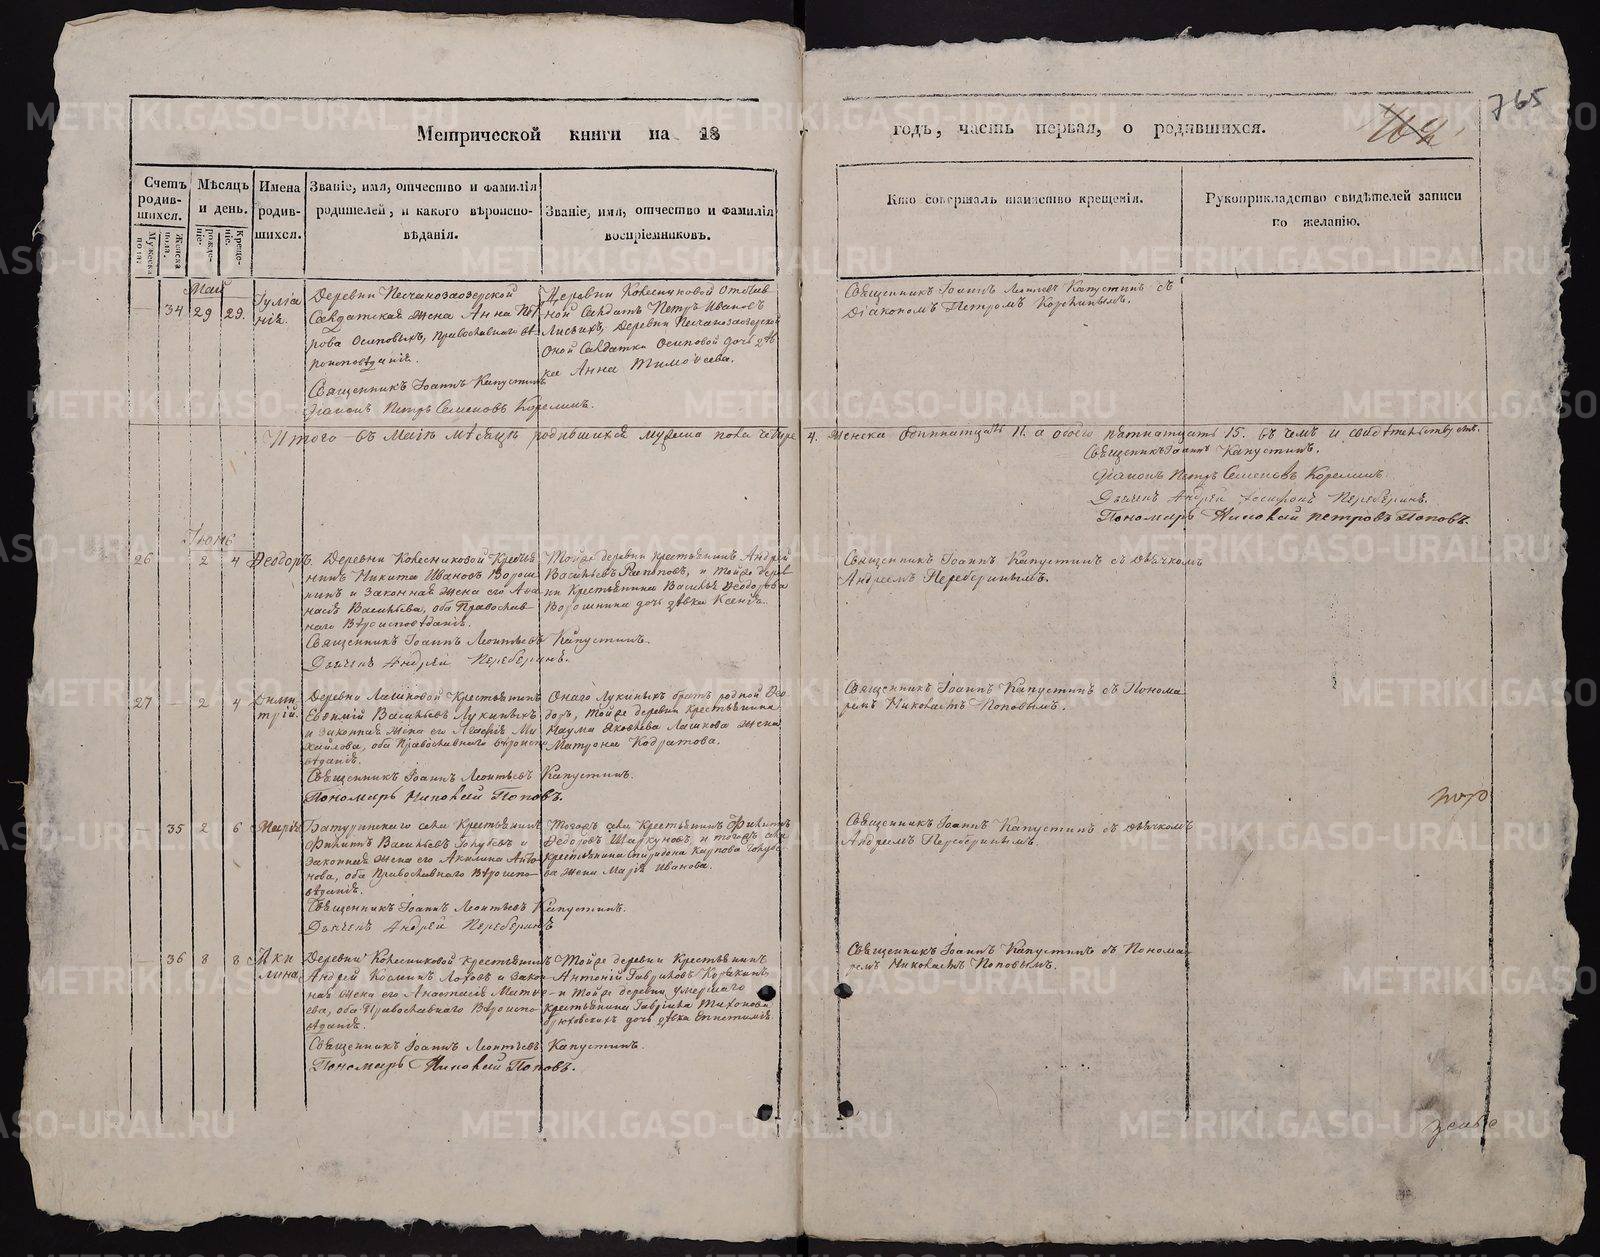 765
Метрической книги на 18
годъ, часть первая, о родившихся.
Счетъ родив-шихся.
Мужеска пола.
Женска пола.
Мѣсяцъ и день.
рожде-ніе.
Креще-ніе.
Имена родив-шихся.
Званіе, имя, отчество и фамилія
родителей, и какого вѣроиспо-
вѣданія.
Званіе, имя, отчество и фамилія
воспріемниковъ.
Кто совершалъ таинство крещенія.
Рукоприкладство свидѣтелей записи
по желанію.
Май
34 29 29.
Іуліа
нія.
Деревни Песчаноозерской
Солдатская жена Анна Пет
рова Осиповыхъ, Православнаго вѣ
роисповѣданія.
Священникъ Іоаннъ Капустинъ
Діаконъ Петръ Семеновъ Корелинъ.
Деревни Колесниковой Отстав
ной Солдатъ Петръ Ивановъ
Деревни Песчаноозерской
Оной Солдатки Осиповой дочь дѣв
ка Анна Тимоѳеева.
Священникъ Іоаннъ Капустинъ съ
Діакономъ Петромъ
Итого въ Маіѣ мѣсяцѣ родившихся мужеска пола четыре 4. Женска одиннатцать 11. а обоего пятнатцать 15. въ чемъ и свидѣтельствуемъ.
Священникъ Іоаннъ Капустинъ.
Діаконъ Петръ Семеновъ Корелинъ
Дьячекъ Андрей Переберинъ.
Пономарь Николай Петровъ Поповъ.
Іюнь
26 2 4
Ѳеодоръ.
Деревни Колесниковой Крестья
нинъ Никита Ивановъ Ворош
нинъ и законная жена его Ана
насія Васильева, оба Православ
наго Вѣроисповѣданія.
Священникъ Іоаннъ Леонтьевъ Капустинъ.
Дьячекъ Андрей Переберинъ.
Тойже деревни крестьянинъ Андрей
Васильевъ и тойже дерев
ни Крестьянина Василья Ѳеодорова
Ворошнина дочь дѣвка Ксенія.
Священникъ Іоаннъ Капустинъ съ дьячкомъ
Андреемъ Переберинымъ.
27 — 2 4
Дими
трій.
Деревни Лашковой Крестьянинъ
Евѳимій Васильевъ Лукиныхъ
и законная жена его Ми
хайлова, оба Православнаго вѣроиспо
вѣданія.
Священникъ Іоаннъ Леонтьевъ Капустинъ.
Пономарь Николай Поповъ.
Онаго Лукиныхъ братъ родной Ѳео
доръ, тойже деревни крестьянина
Наума Яковлева Лашкова жена
Матрона Кодратова.
Священникъ Іоаннъ Капустинъ съ Понома
ремъ Николаемъ Поповымъ.
35 2 6
Марія
Батуринскаго села Крестьянинъ
Филипъ Васильевъ Голубевъ и
законная жена его Акилина Анто
нова, оба Православнаго Вѣроиспо
вѣданія.
Священникъ Іоаннъ Леонтьевъ Капустинъ.
Дьячекъ Андрей Переберинъ
Тогожъ села Крестьянинъ Филипъ
Ѳедоровъ и тогожъ села
крестьянина Спиридона Карпова Голубе
ва жена Марія Иванова.
Священникъ Іоаннъ Капустинъ съ дьячкомъ
Андреемъ Переберинымъ.
— 36 8 8
Аки
лина.
Деревни Колесниковой крестьянинъ
Андрей Косминъ и Закон
ная жена его Анастасія Матве
ева, оба Православнаго Вѣроиспо
вѣданія.
Священникъ Іоаннъ Леонтьевъ Капустинъ.
Пономарь Николай Поповъ.
Тойже деревни Крестьянинъ
Антоній Гавриловъ
и тойже деревни умершаго
крестьянина Гаврила Тихонова
дочь дѣвка Епистимія.
Священникъ Іоаннъ Капустинъ съ Понома
ремъ Николаемъ Поповымъ.
METRIKI.GASO-URAL.RU